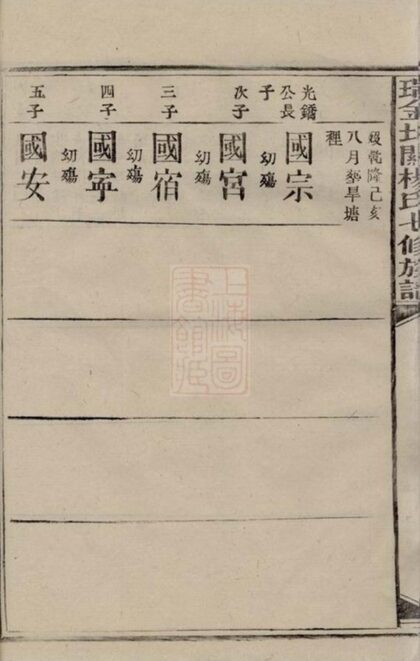 瑞金關楊氏七修族譜
乾隆己亥
八月葬旱塘
光鐈
公長
子
國宗
幼殤
次子
國宮
幼殤
三子
國宿
幼殤
四子
國寧
幼殤
五子
國安
上海圖
書館藏